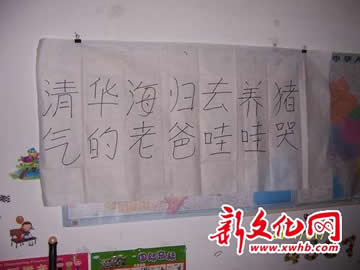 清华海归去养猪
气的老爸哇哇哭
新文化网
www.xwhb.com